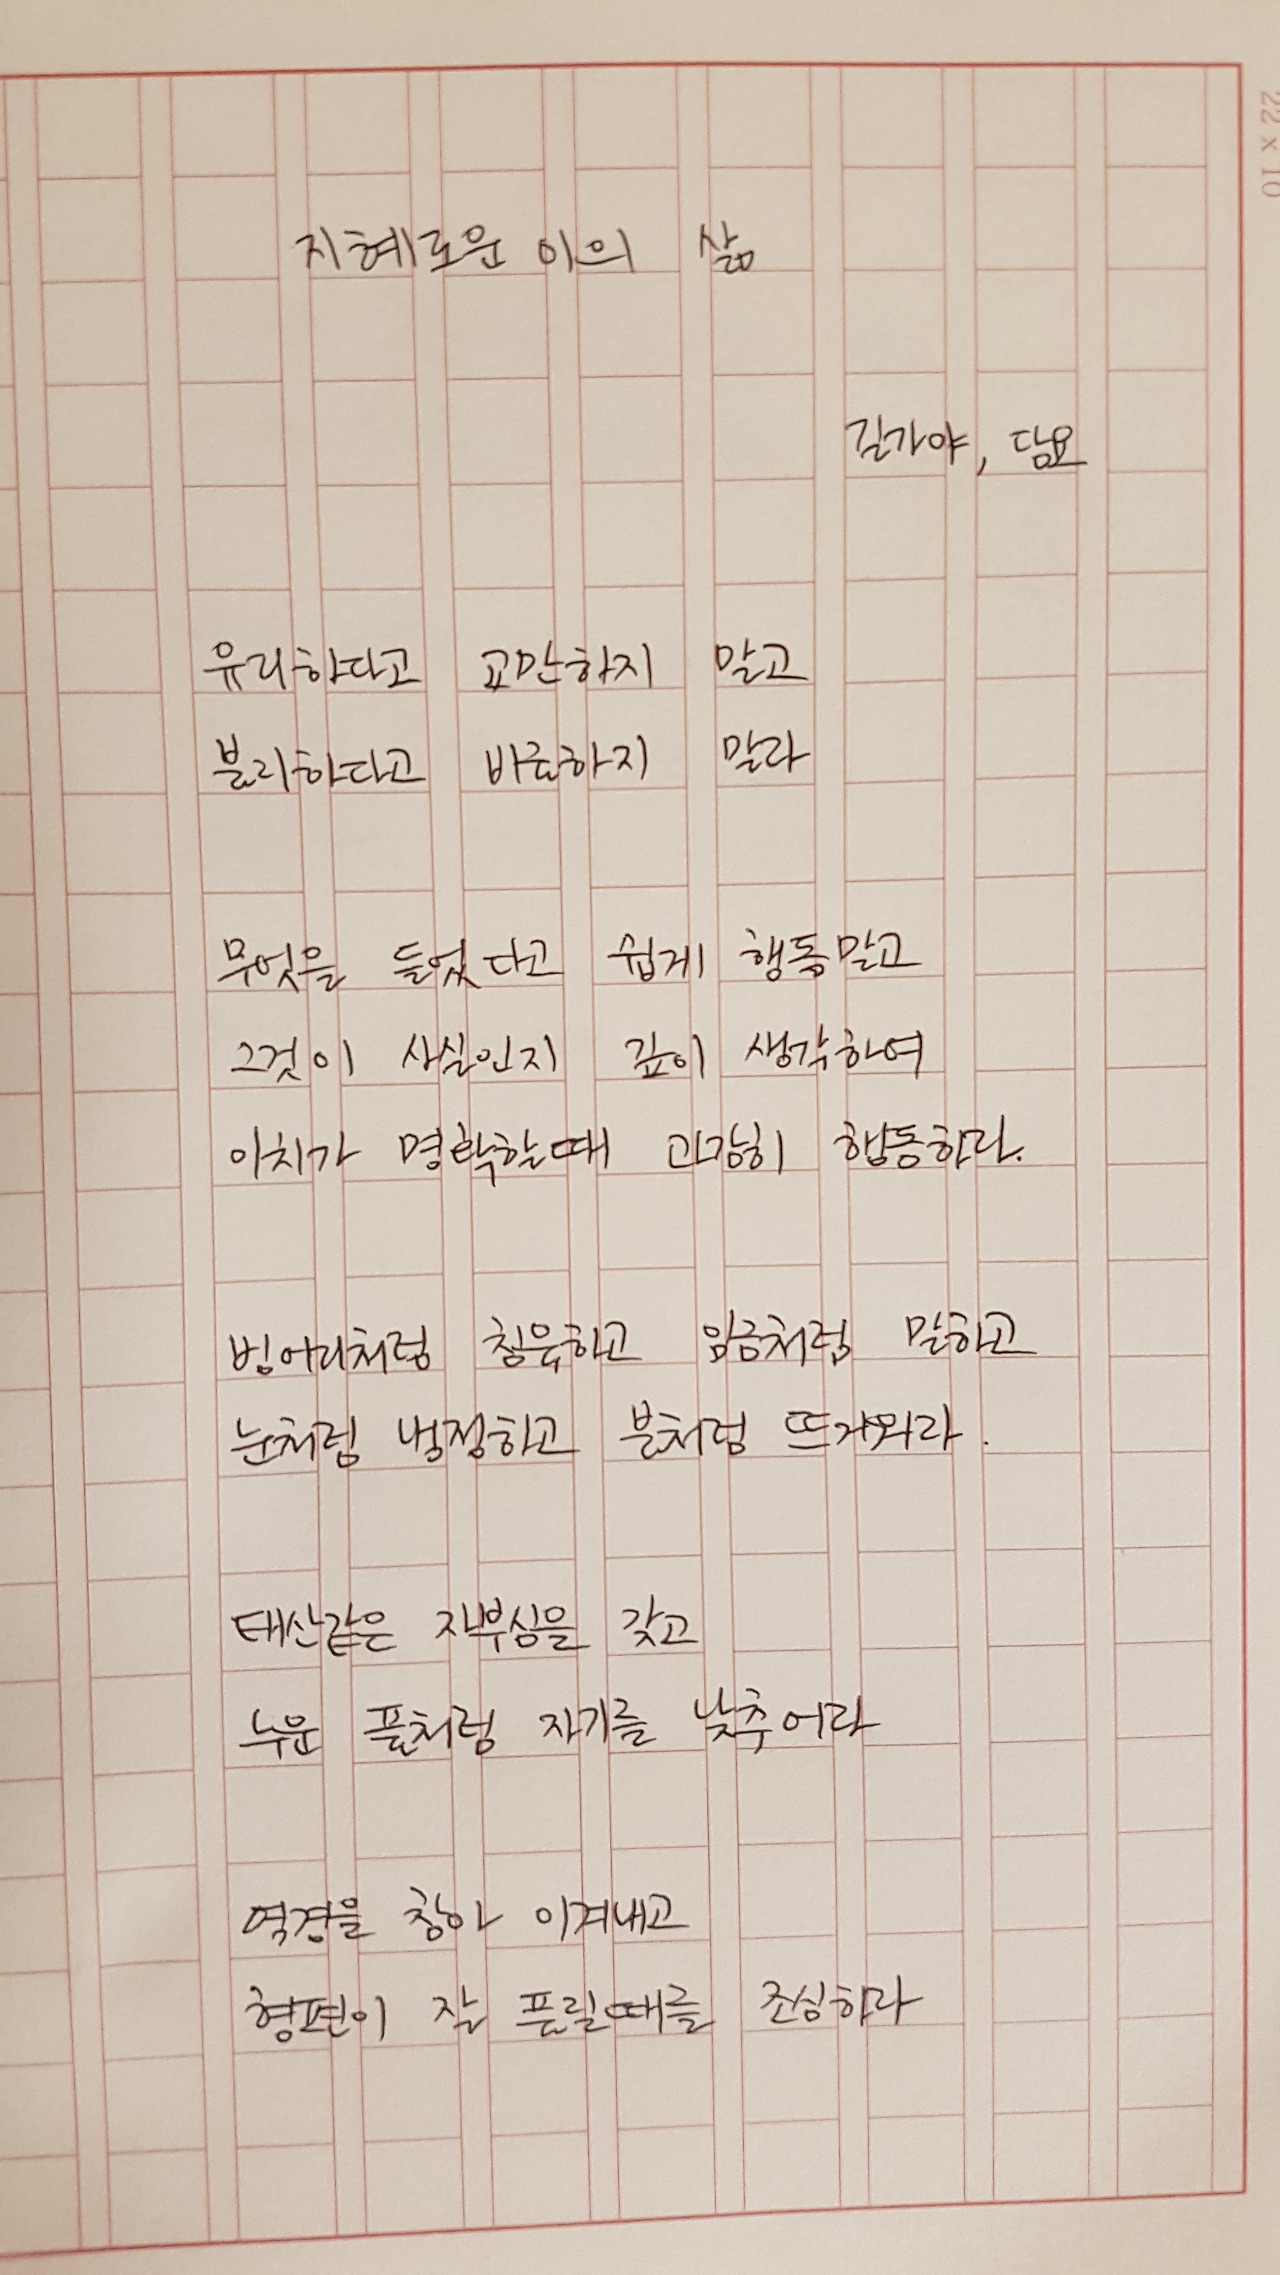 지혜로운 이의 삶
길가야, 담요
유리하다고 교만하지 말고
불리하다고 비굴하지 말라
무엇을 들었다고 쉽게 행동말고
그것이 사실인지 깊이 생각하여
이치가 명확할때 과감히 행동하라.
벙어리처럼 침묵하고 임금처럼 말하고
눈처럼 냉정하고 불처럼 뜨거워라.
태산같은 자부심을 갖고
누운 풀처럼 자기를 낮추어라
역경을 참아 이겨내고
형편이 잘 풀릴때를 조심하라
22 x 10